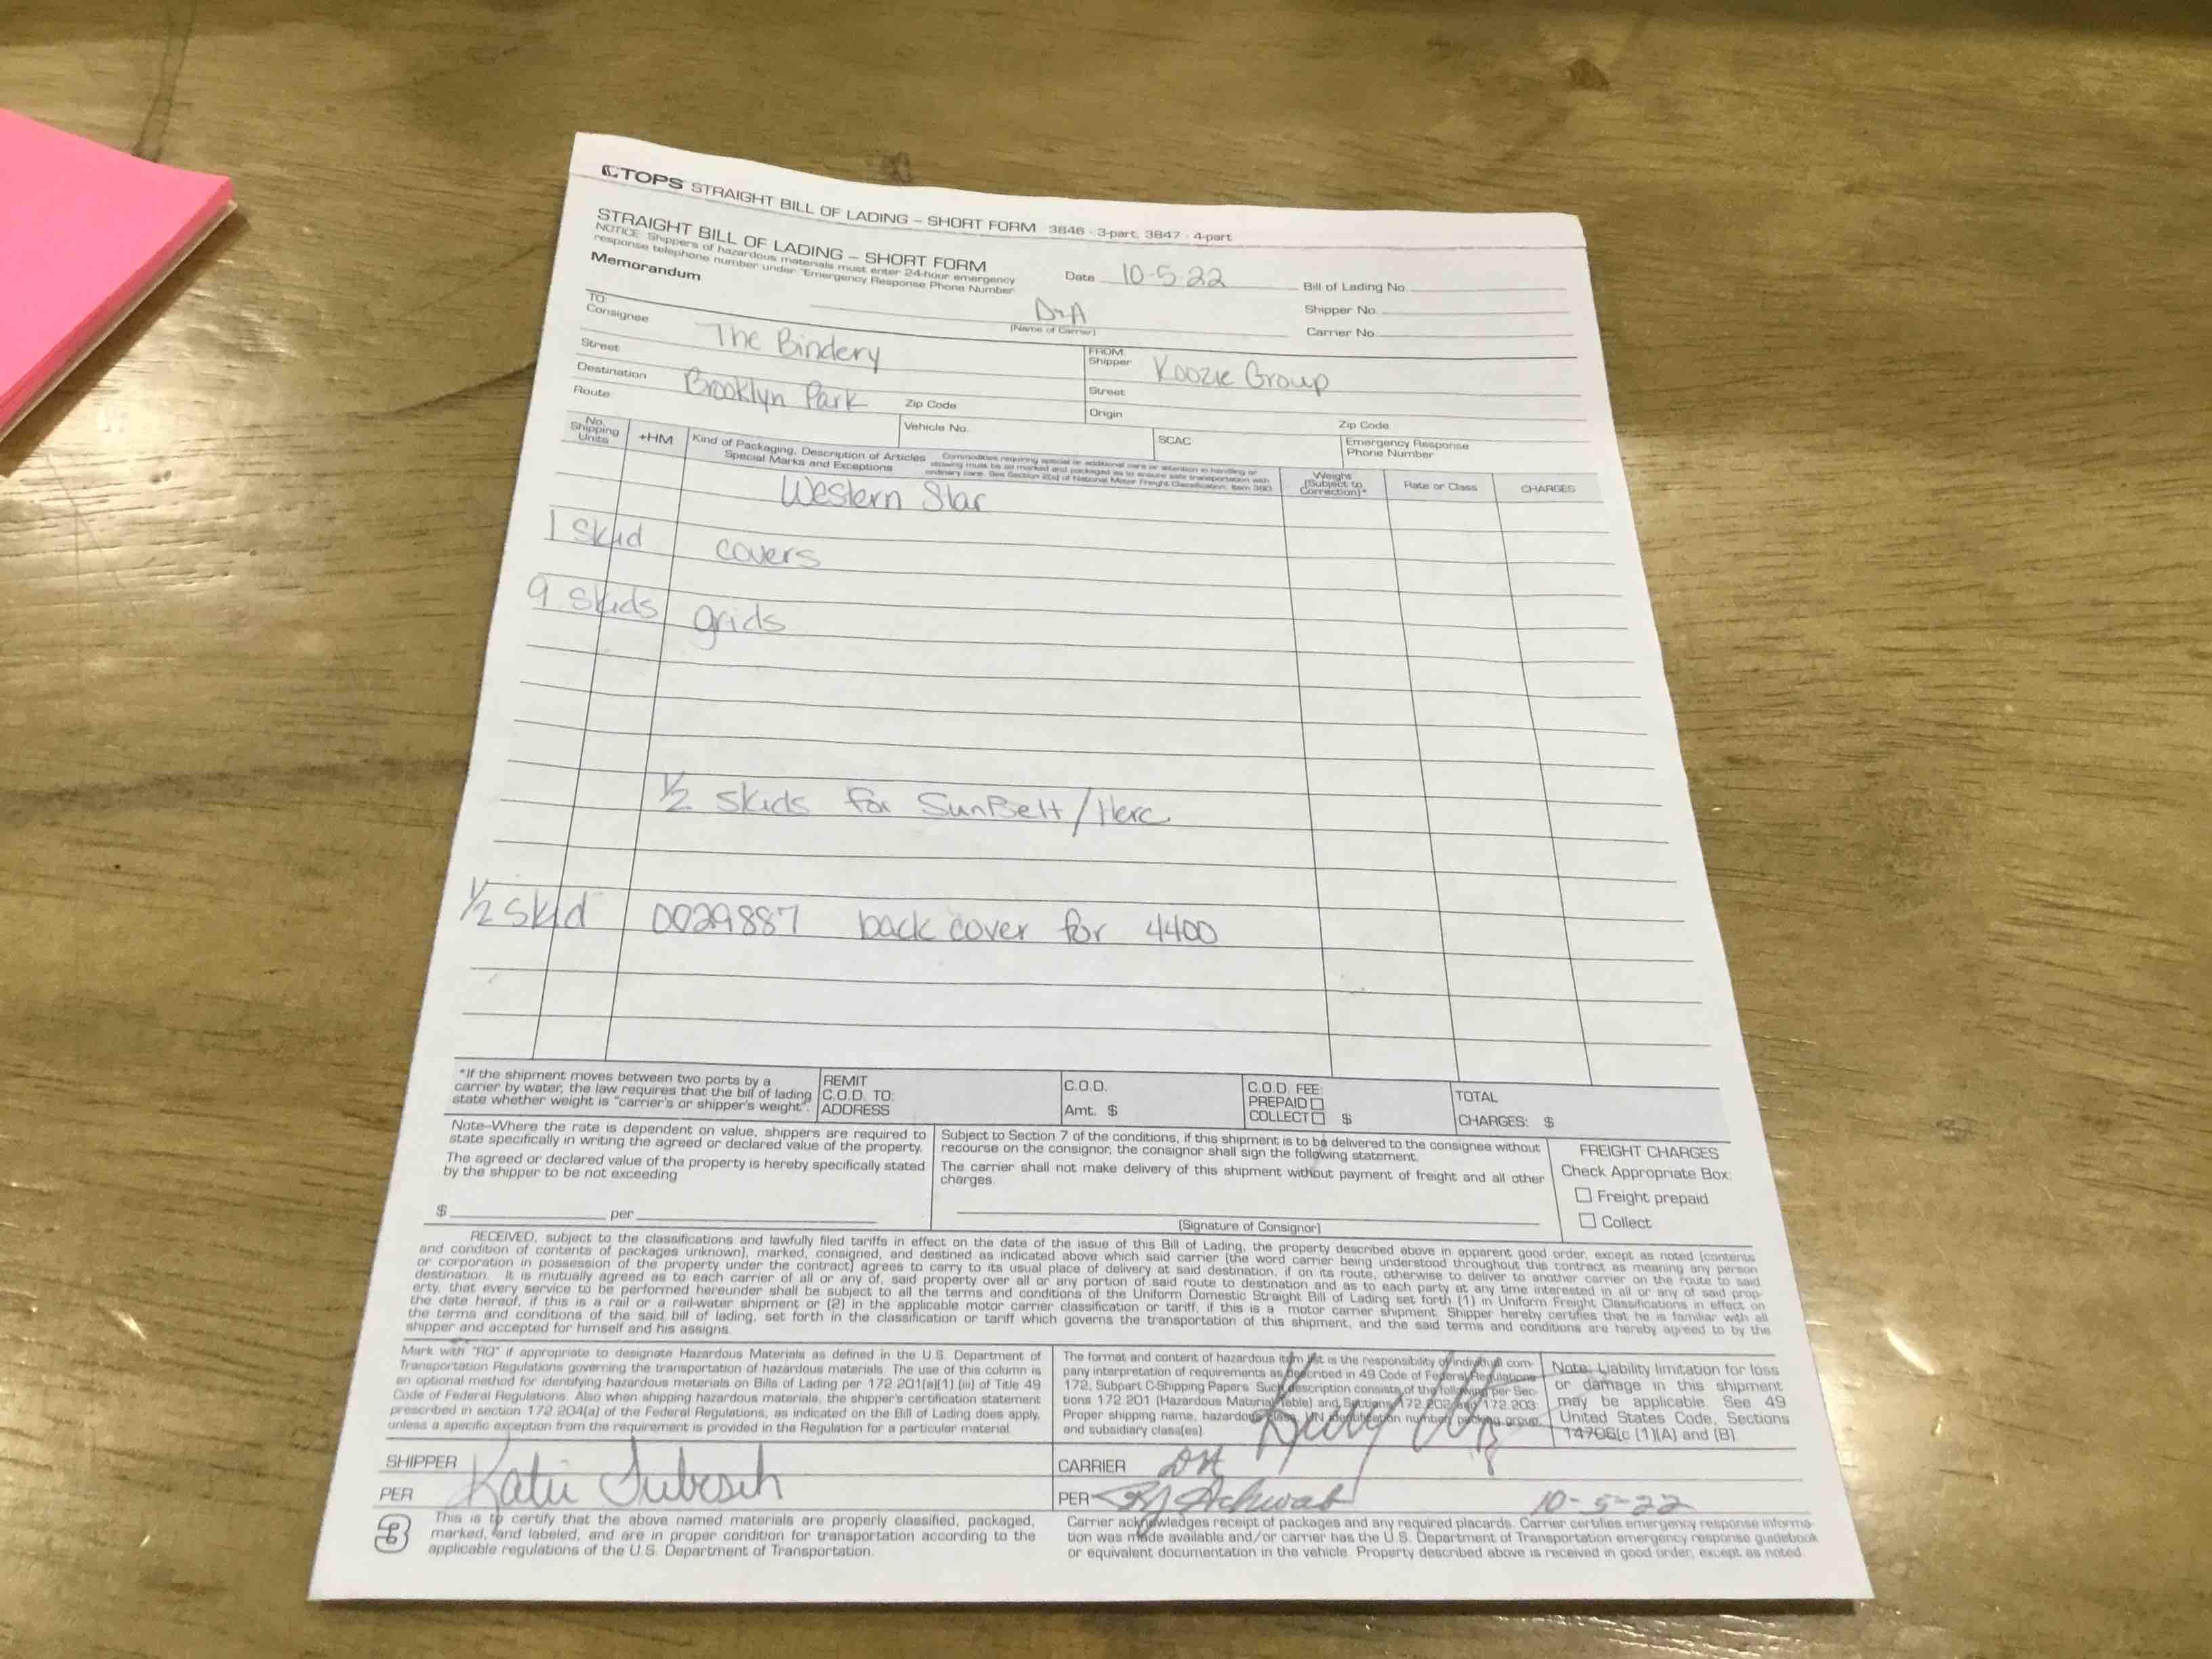 TOPS STRAIGHT BILL OF LADING – SHORT FORM 3846 - 3-part, 3847 - 4-part
STRAIGHT BILL OF LADING – SHORT FORM
NOTICE: Shippers of hazardous materials must enter 24-hour emergency
response telephone number under "Emergency Response Phone Number."
Memorandum
Date 10-5-22
Bill of Lading No.
Shipper No.
Carrier No.
(Name of Carrier)
TO:
Consignee The Bindery
Street
Destination Brooklyn Park Zip Code
Route:
FROM:
Shipper Koozie Group
Street
Origin Zip Code
Vehicle No.
SCAC
Emergency Response
Phone Number
No. Shipping Units
+HM
Kind of Packaging, Description of Articles
Special Marks and Exceptions
Commodities requiring special or additional care or attention in handling or
stowing must be so marked and packaged as to ensure safe transportation with
ordinary care. See Section 2(e) of National Motor Freight Classification, Item 360
Weight
(Subject to
Correction)*
Rate or Class
CHARGES
Western Star
1 Skid covers
9 skids grids
1/2 skids for SunBelt/Herc
1/2 skid 0029887 back cover for 4400
*If the shipment moves between two ports by a
carrier by water, the law requires that the bill of lading
state whether weight is "carrier's or shipper's weight".
REMIT
C.O.D. TO:
ADDRESS
C.O.D.
Amt. $
C.O.D. FEE:
PREPAID
COLLECT $
TOTAL
CHARGES: $
Note–Where the rate is dependent on value, shippers are required to
state specifically in writing the agreed or declared value of the property.
The agreed or declared value of the property is hereby specifically stated
by the shipper to be not exceeding
$ per
Subject to Section 7 of the conditions, if this shipment is to be delivered to the consignee without
recourse on the consignor, the consignor shall sign the following statement.
The carrier shall not make delivery of this shipment without payment of freight and all other
charges.
(Signature of Consignor)
FREIGHT CHARGES
Check Appropriate Box:
Freight prepaid
Collect
RECEIVED, subject to the classifications and lawfully filed tariffs in effect on the date of the issue of this Bill of Lading, the property described above in apparent good order, except as noted (contents
and condition of contents of packages unknown), marked, consigned, and destined as indicated above which said carrier (the word carrier being understood throughout this contract as meaning any person
or corporation in possession of the property under the contract) agrees to carry to its usual place of delivery at said destination, if on its route, otherwise to deliver to another carrier on the route to said
destination. It is mutually agreed as to each carrier of all or any of, said property over all or any portion of said route to destination and as to each party at any time interested in all or any of said prop-
erty, that every service to be performed hereunder shall be subject to all the terms and conditions of the Uniform Domestic Straight Bill of Lading set forth (1) in Uniform Freight Classifications in effect on
the date hereof, if this is a rail or a rail-water shipment or (2) in the applicable motor carrier classification or tariff, if this is a motor carrier shipment. Shipper hereby certifies that he is familiar with all
the terms and conditions of the said bill of lading, set forth in the classification or tariff which governs the transportation of this shipment, and the said terms and conditions are hereby agreed to by the
shipper and accepted for himself and his assigns.
Mark with "RQ" if appropriate to designate Hazardous Materials as defined in the U.S. Department of
Transportation Regulations governing the transportation of hazardous materials. The use of this column is
an optional method for identifying hazardous materials on Bills of Lading per 172.201(a)(1) (iii) of Title 49
Code of Federal Regulations. Also when shipping hazardous materials, the shipper's certification statement
prescribed in section 172.204(a) of the Federal Regulations, as indicated on the Bill of Lading does apply,
unless a specific exception from the requirement is provided in the Regulation for a particular material.
The format and content of hazardous item list is the responsibility of individual com-
pany interpretation of requirements as described in 49 Code of Federal Regulations
172, Subpart C-Shipping Papers. Such description consists of the following per Sec-
tions 172.201 (Hazardous Material Table) and Sections 172.202 and 172.203:
Proper shipping name, hazardous class, UN identification number, packing group,
and subsidiary class(es)
Note: Liability limitation for loss
or damage in this shipment
may be applicable. See 49
United States Code, Sections
14706(c (1)(A) and (B).
SHIPPER
PER Katie
CARRIER
PER 10-5-22
3
This is to certify that the above named materials are properly classified, packaged,
marked, and labeled, and are in proper condition for transportation according to the
applicable regulations of the U.S. Department of Transportation.
Carrier acknowledges receipt of packages and any required placards. Carrier certifies emergency response informa-
tion was made available and/or carrier has the U.S. Department of Transportation emergency response guidebook
or equivalent documentation in the vehicle. Property described above is received in good order, except as noted.